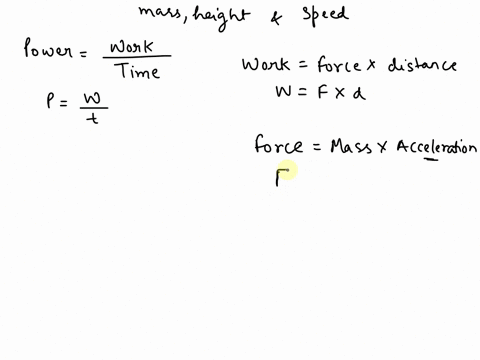 mass, height & speed
Power = Work / Time
P = W / t
Work = force × distance
W = F × d
force = Mass × Acceleration
F